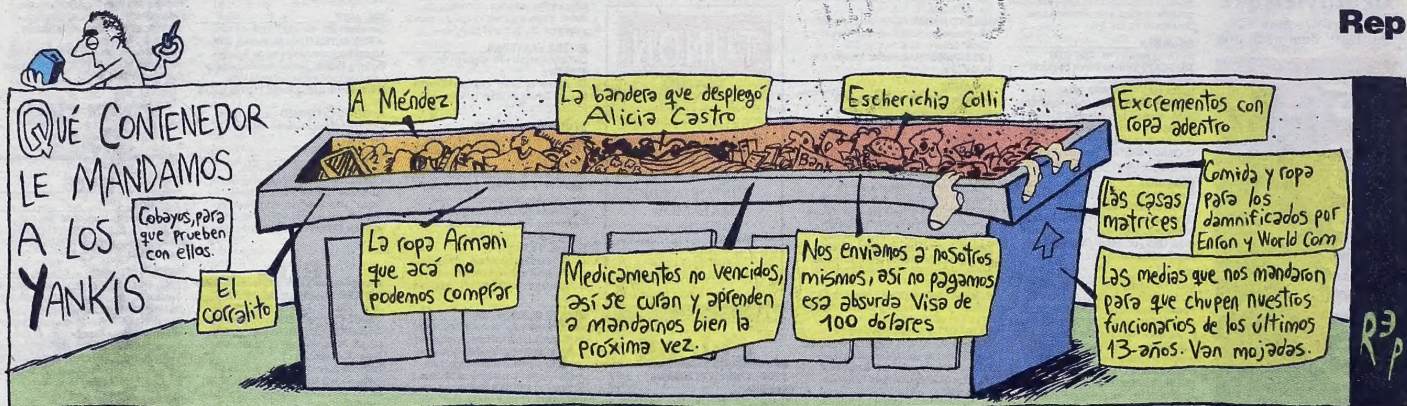 Rep
QUÉ CONTENEDOR
LE MANDAMOS
A LOS
YANKIS
Cobayos, para
que prueben
con ellos.
El
corralito
A Méndez
La ropa Armani
que acá no
podemos comprar
La bandera que desplegó
Alicia Castro
Medicamentos no vencidos,
así se curan y aprenden
a mandarnos bien la
próxima vez.
Escherichia Colli
Nos enviamos a nosotros
mismos, así no pagamos
esa absurda Visa de
100 dólares
Excrementos con
ropa adentro
Las casas
matrices
Comida y ropa
para los
damnificados por
Enron y World Com
Las medias que nos mandaron
para que chupen nuestros
funcionarios de los últimos
13 años. Van mojadas.
Rep